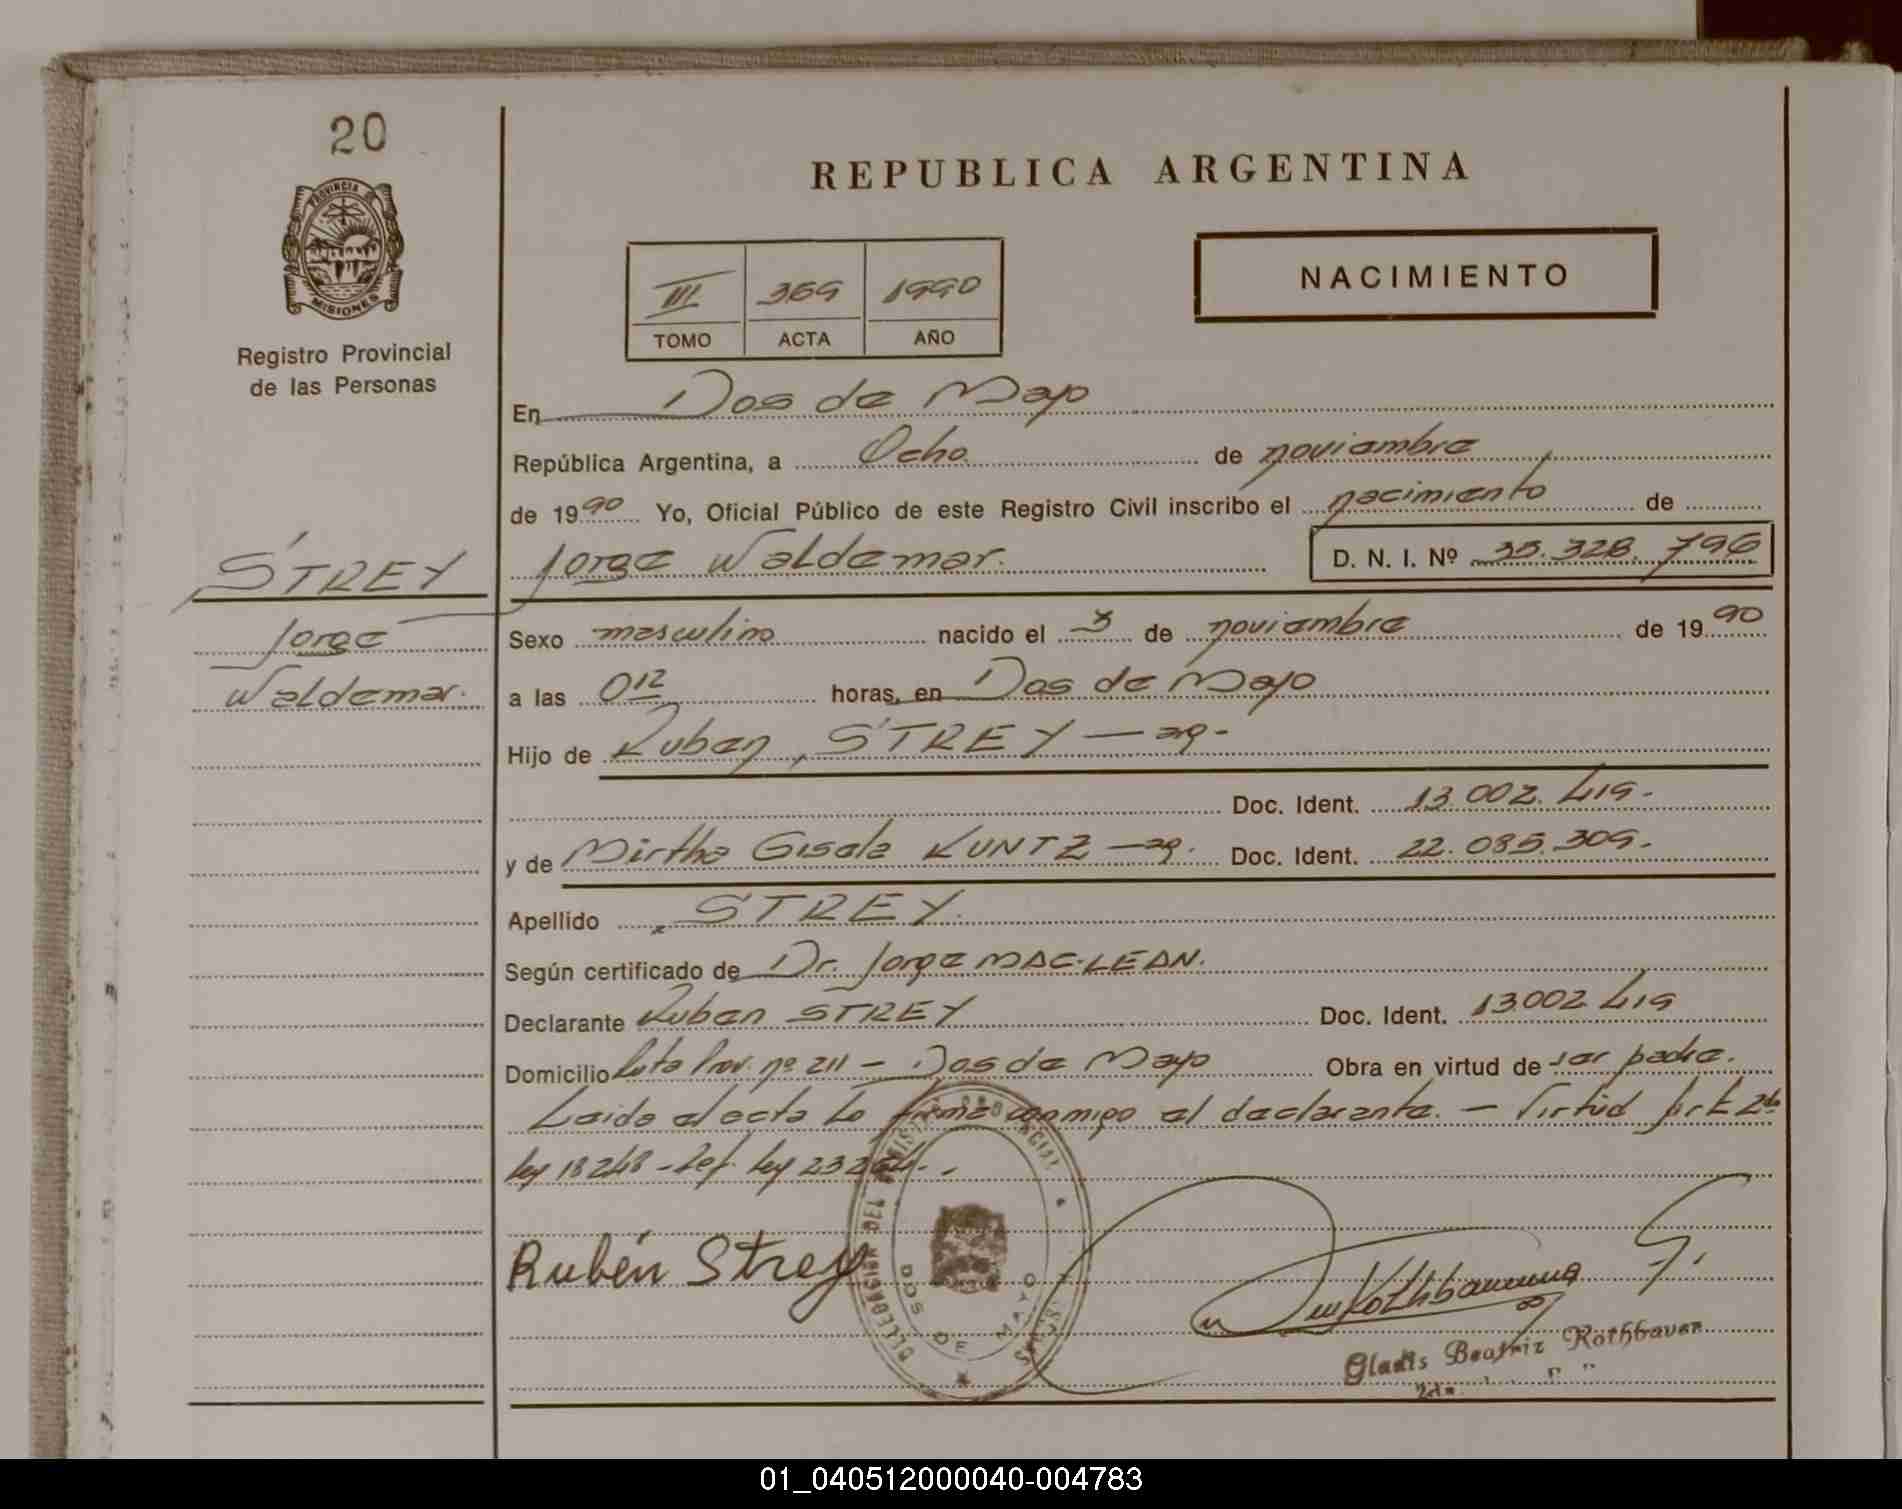 20
PROVINCIA DE
MISIONES
Registro Provincial
de las Personas
REPUBLICA ARGENTINA
III 369 1990
TOMO ACTA AÑO
NACIMIENTO
En Dos de Mayo
República Argentina, a Ocho de noviembre
de 1990 Yo, Oficial Público de este Registro Civil inscribo el nacimiento de
Jorge Waldemar. D. N. I. Nº 35.328.796
STREY
Jorge
Waldemar.
Sexo masculino nacido el 3 de noviembre de 1990
a las 0 12 horas, en Dos de Mayo
Hijo de Ruben STREY — arg-
Doc. Ident. 13.002.419.-
y de Mirtha Gisela KUNTZ — arg. Doc. Ident. 22.085.309.-
Apellido STREY.
Según certificado de Dr. Jorge MAC-LEAN.
Declarante Ruben STREY Doc. Ident. 13.002.419
Domicilio Ruta Prov. nº 211 — Dos de Mayo Obra en virtud de ser padre.
Leida el acta la firma conmigo el declarante. — Virtud
ley 18248 - ley 23264.-
Rubén Strey
DELEGACION DEL REGISTRO PROVINCIAL
DOS DE MAYO
Gladis Beatriz Rothbauer